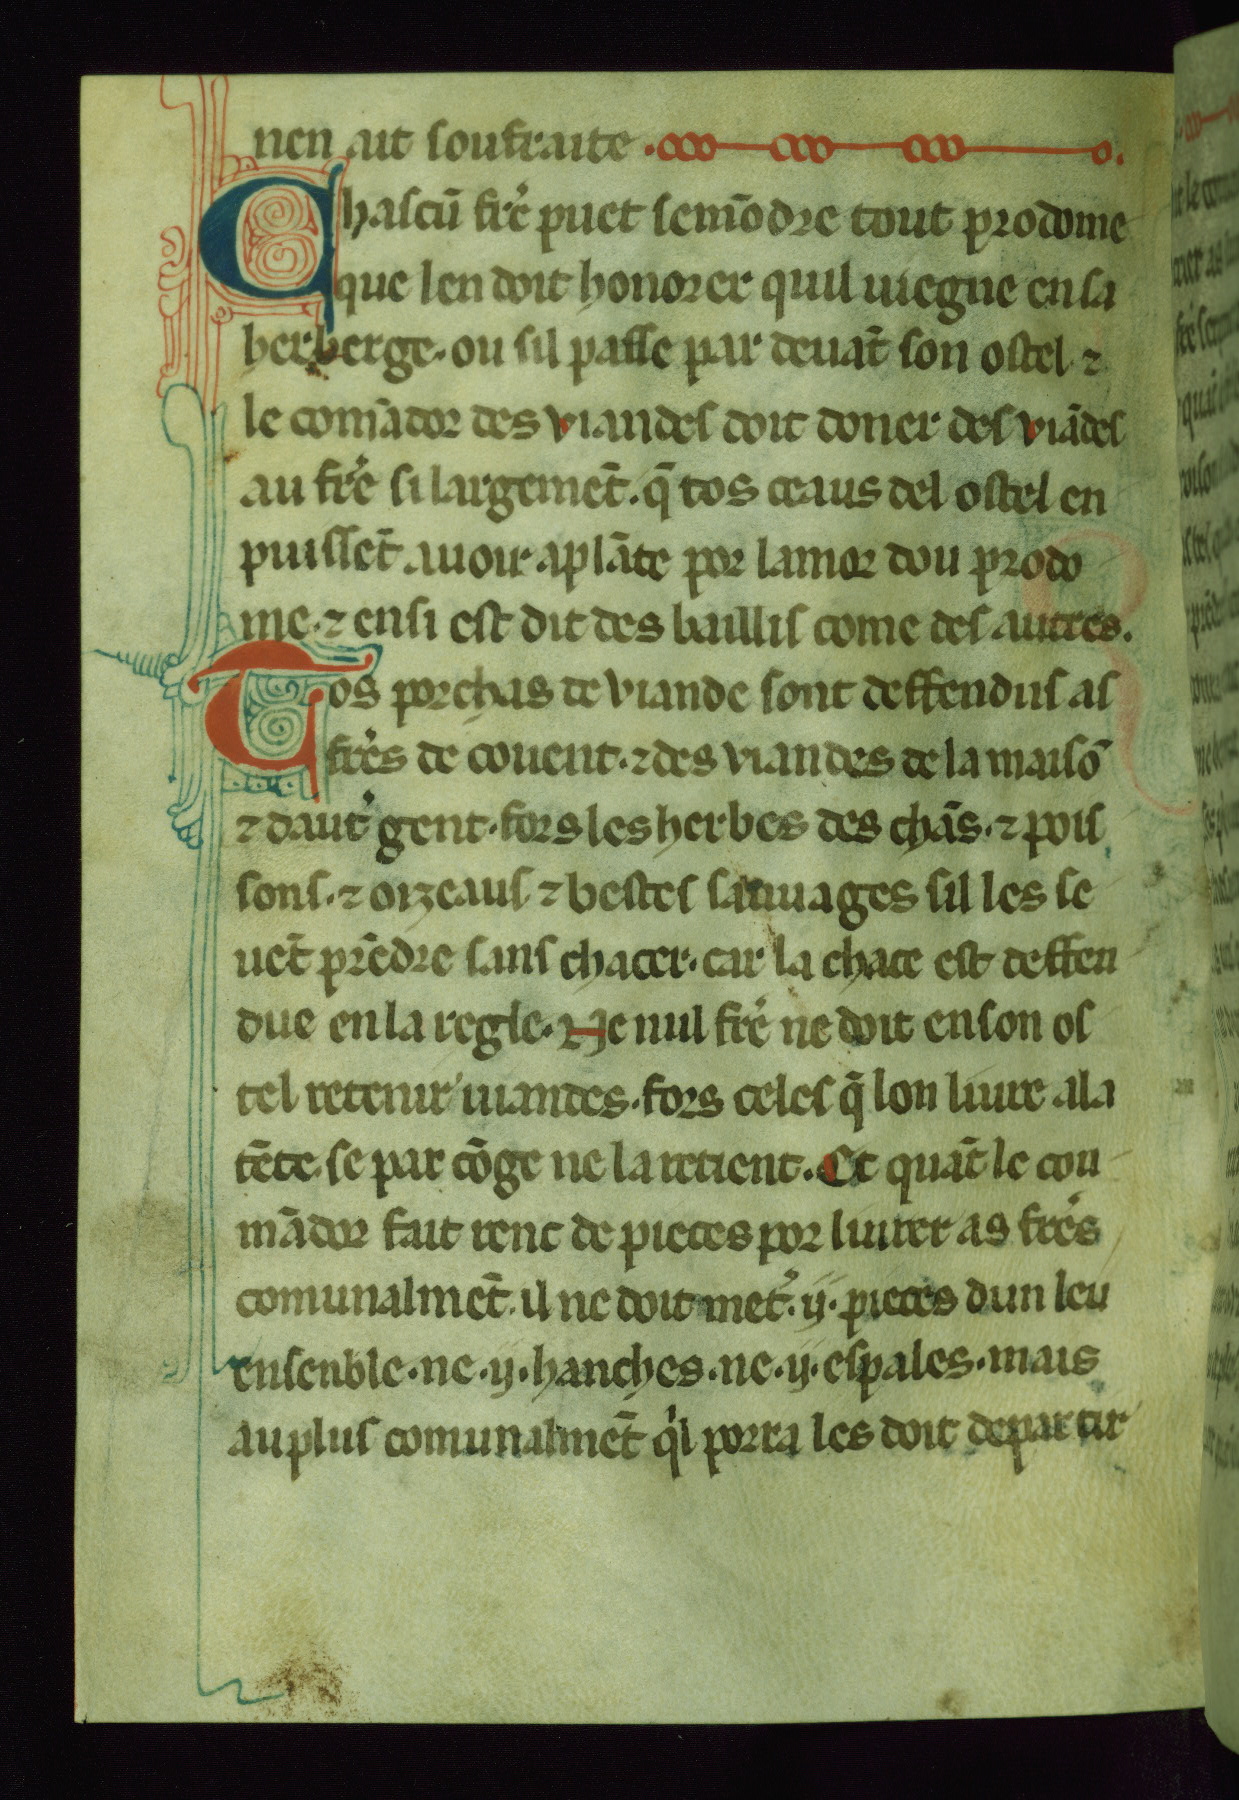 nen ait soufraite.
Chascū frẽ puet semōdre tout prodome
que len doit honorer quil uiegne en sa
herberge. ou sil passe par deuāt son ostel ⁊
le comādor des viandes doit doner des viādes
au frẽ si largemēt. q̄ tos ceaus del ostel en
puissēt auoir a plāte por lamor dou prodo
me. ⁊ ensi est dit des baillis come des autres.
Tos porchas de viande sont deffendus as
frẽs de couent. ⁊ des viandes de la maisō
⁊ daut᾽ gent. fors les herbes des chās. ⁊ pois
sons. ⁊ oizeaus. ⁊ bestes sauuages sil les se
uēt prēdre sans chacer. car la chace est deffen
due en la regle. Ne nul frẽ ne doit en son os
tel retenir uiandes. fors celes q̄ lon liure a la
tēte. se par cōge ne la retient. Et quāt le cou
mādor fait renc de pieces por liurer as frẽs
comunalmēt. il ne doit met᾽. ij. pieces dun leu
ensenble. ne. ij. hanches. ne. ij. espales. mais
au plus comunalmēt q᾽l porra les doit departir